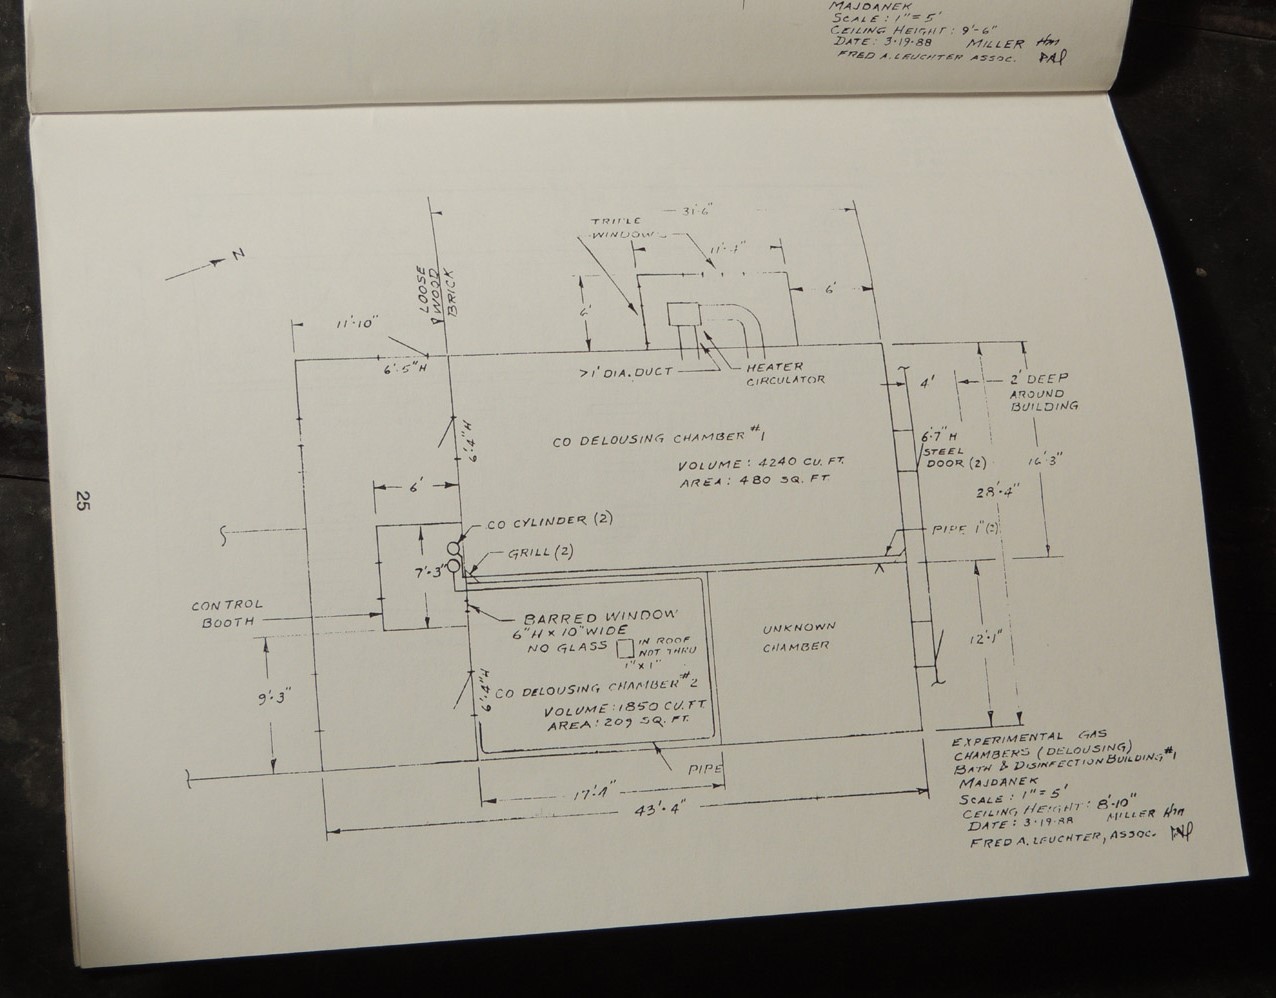 MAJDANEK
SCALE: 1"= 5'
CEILING HEIGHT: 9'-6"
DATE: 3-19-88 MILLER Hm
FRED A. LEUCHTER ASSOC.
N
31'6"
TRIPLE
WINDOWS
11'-4"
6'
LOOSE
WOOD
BRICK
11'-10"
6'-5"H
>1' DIA. DUCT
HEATER
CIRCULATOR
4'
2' DEEP
AROUND
BUILDING
6'-4"H
CO DELOUSING CHAMBER #1
VOLUME: 4240 CU. FT.
AREA: 480 SQ. FT.
6'-7" H
STEEL
DOOR (2)
16'-3"
28'-4"
6'
CO CYLINDER (2)
GRILL (2)
PIPE 1"(2)
7'-3"
CONTROL
BOOTH
BARRED WINDOW
6"H X 10" WIDE
NO GLASS
IN ROOF
NOT THRU
1" X 1"
UNKNOWN
CHAMBER
12'-1"
9'-3"
6'-4"H
CO DELOUSING CHAMBER #2
VOLUME: 1850 CU. FT.
AREA: 209 SQ. FT.
PIPE
17'-4"
43'-4"
EXPERIMENTAL GAS
CHAMBERS (DELOUSING)
BATH & DISINFECTION BUILDING #1
MAJDANEK
SCALE: 1"= 5'
CEILING HEIGHT: 8'-10"
DATE: 3-19-88 MILLER Hm
FRED A. LEUCHTER, ASSOC.
25